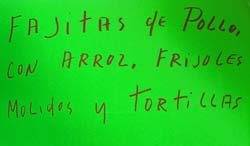 FAJITAS de POLLO,
CON ARROZ, FRIJOLES
MOLIDOS y TORTILLAS